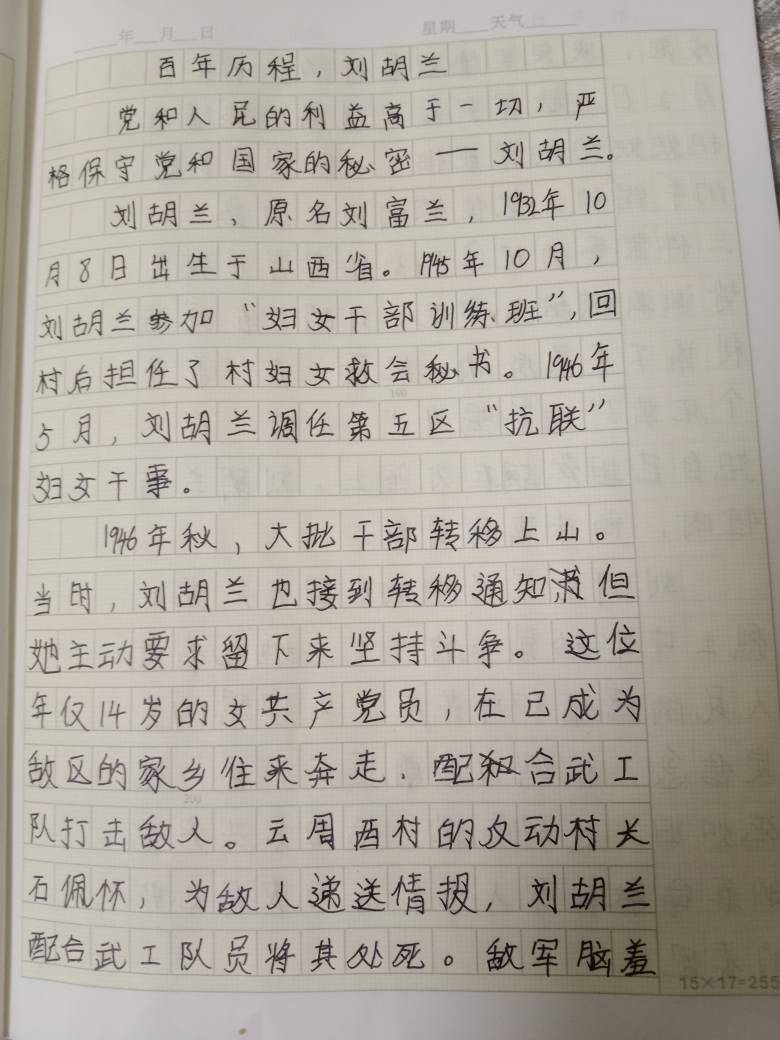 年 月 日 星期 天气
百年历程，刘胡兰
党和人民的利益高于一切，严
格保守党和国家的秘密——刘胡兰。
刘胡兰，原名刘富兰，1932年10
月8日出生于山西省。1945年10月，
刘胡兰参加“妇女干部训练班”，回
村后担任了村妇女救会秘书。1946年
100
5月，刘胡兰调任第五区“抗联”
妇女干事。
1946年秋，大批干部转移上山。
当时，刘胡兰也接到转移通知，但
她主动要求留下来坚持斗争。这位
年仅14岁的女共产党员，在已成为
敌区的家乡往来奔走，配合武工
200
队打击敌人。云周西村的反动村长
石佩怀，为敌人递送情报，刘胡兰
配合武工队员将其处死。敌军脑羞
15×17=255